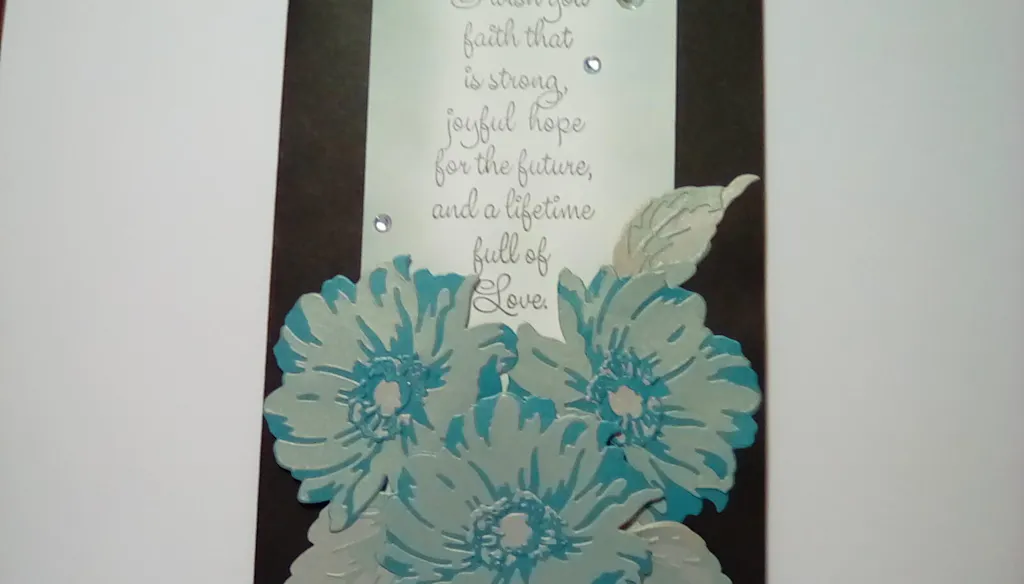 I wish you
faith that
is strong,
joyful hope
for the future,
and a lifetime
full of
Love.